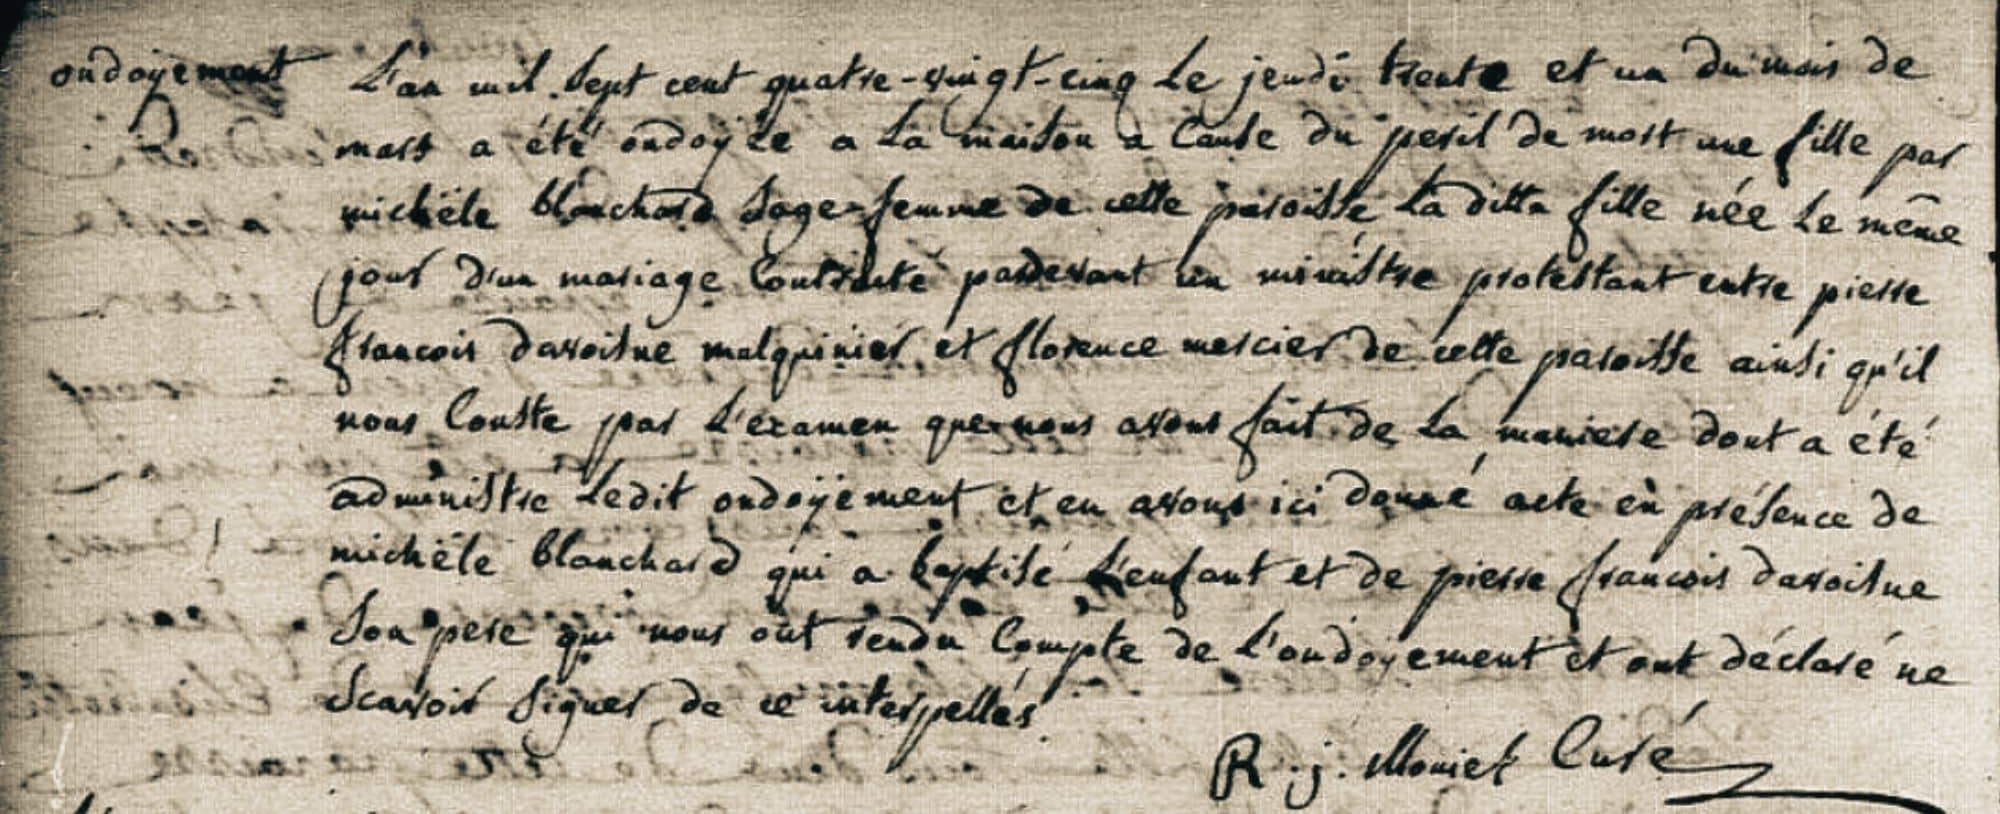 ondoyement
L'an mil sept cent quatre-vingt-cinq le jeudi trente et un du mois de
mars a été ondoyée a la maison a cause du peril de mort une fille par
michèle blanchard sage-femme de cette paroisse la ditte fille née le même
jour d'un mariage contracté pardevant un ministre protestant entre pierre
françois davoisne mulquinier et florence mercier de cette paroisse ainsi qu'il
nous conste par l'examen que nous avons fait de la maniere dont a été
administré ledit ondoyement et en avons ici donné acte en présence de
michèle blanchard qui a baptisé l'enfant et de pierre françois davoisne
son pere qui nous ont rendu compte de l'ondoyement et ont déclaré ne
scavoir signer de ce interpellés
R. j. Curé